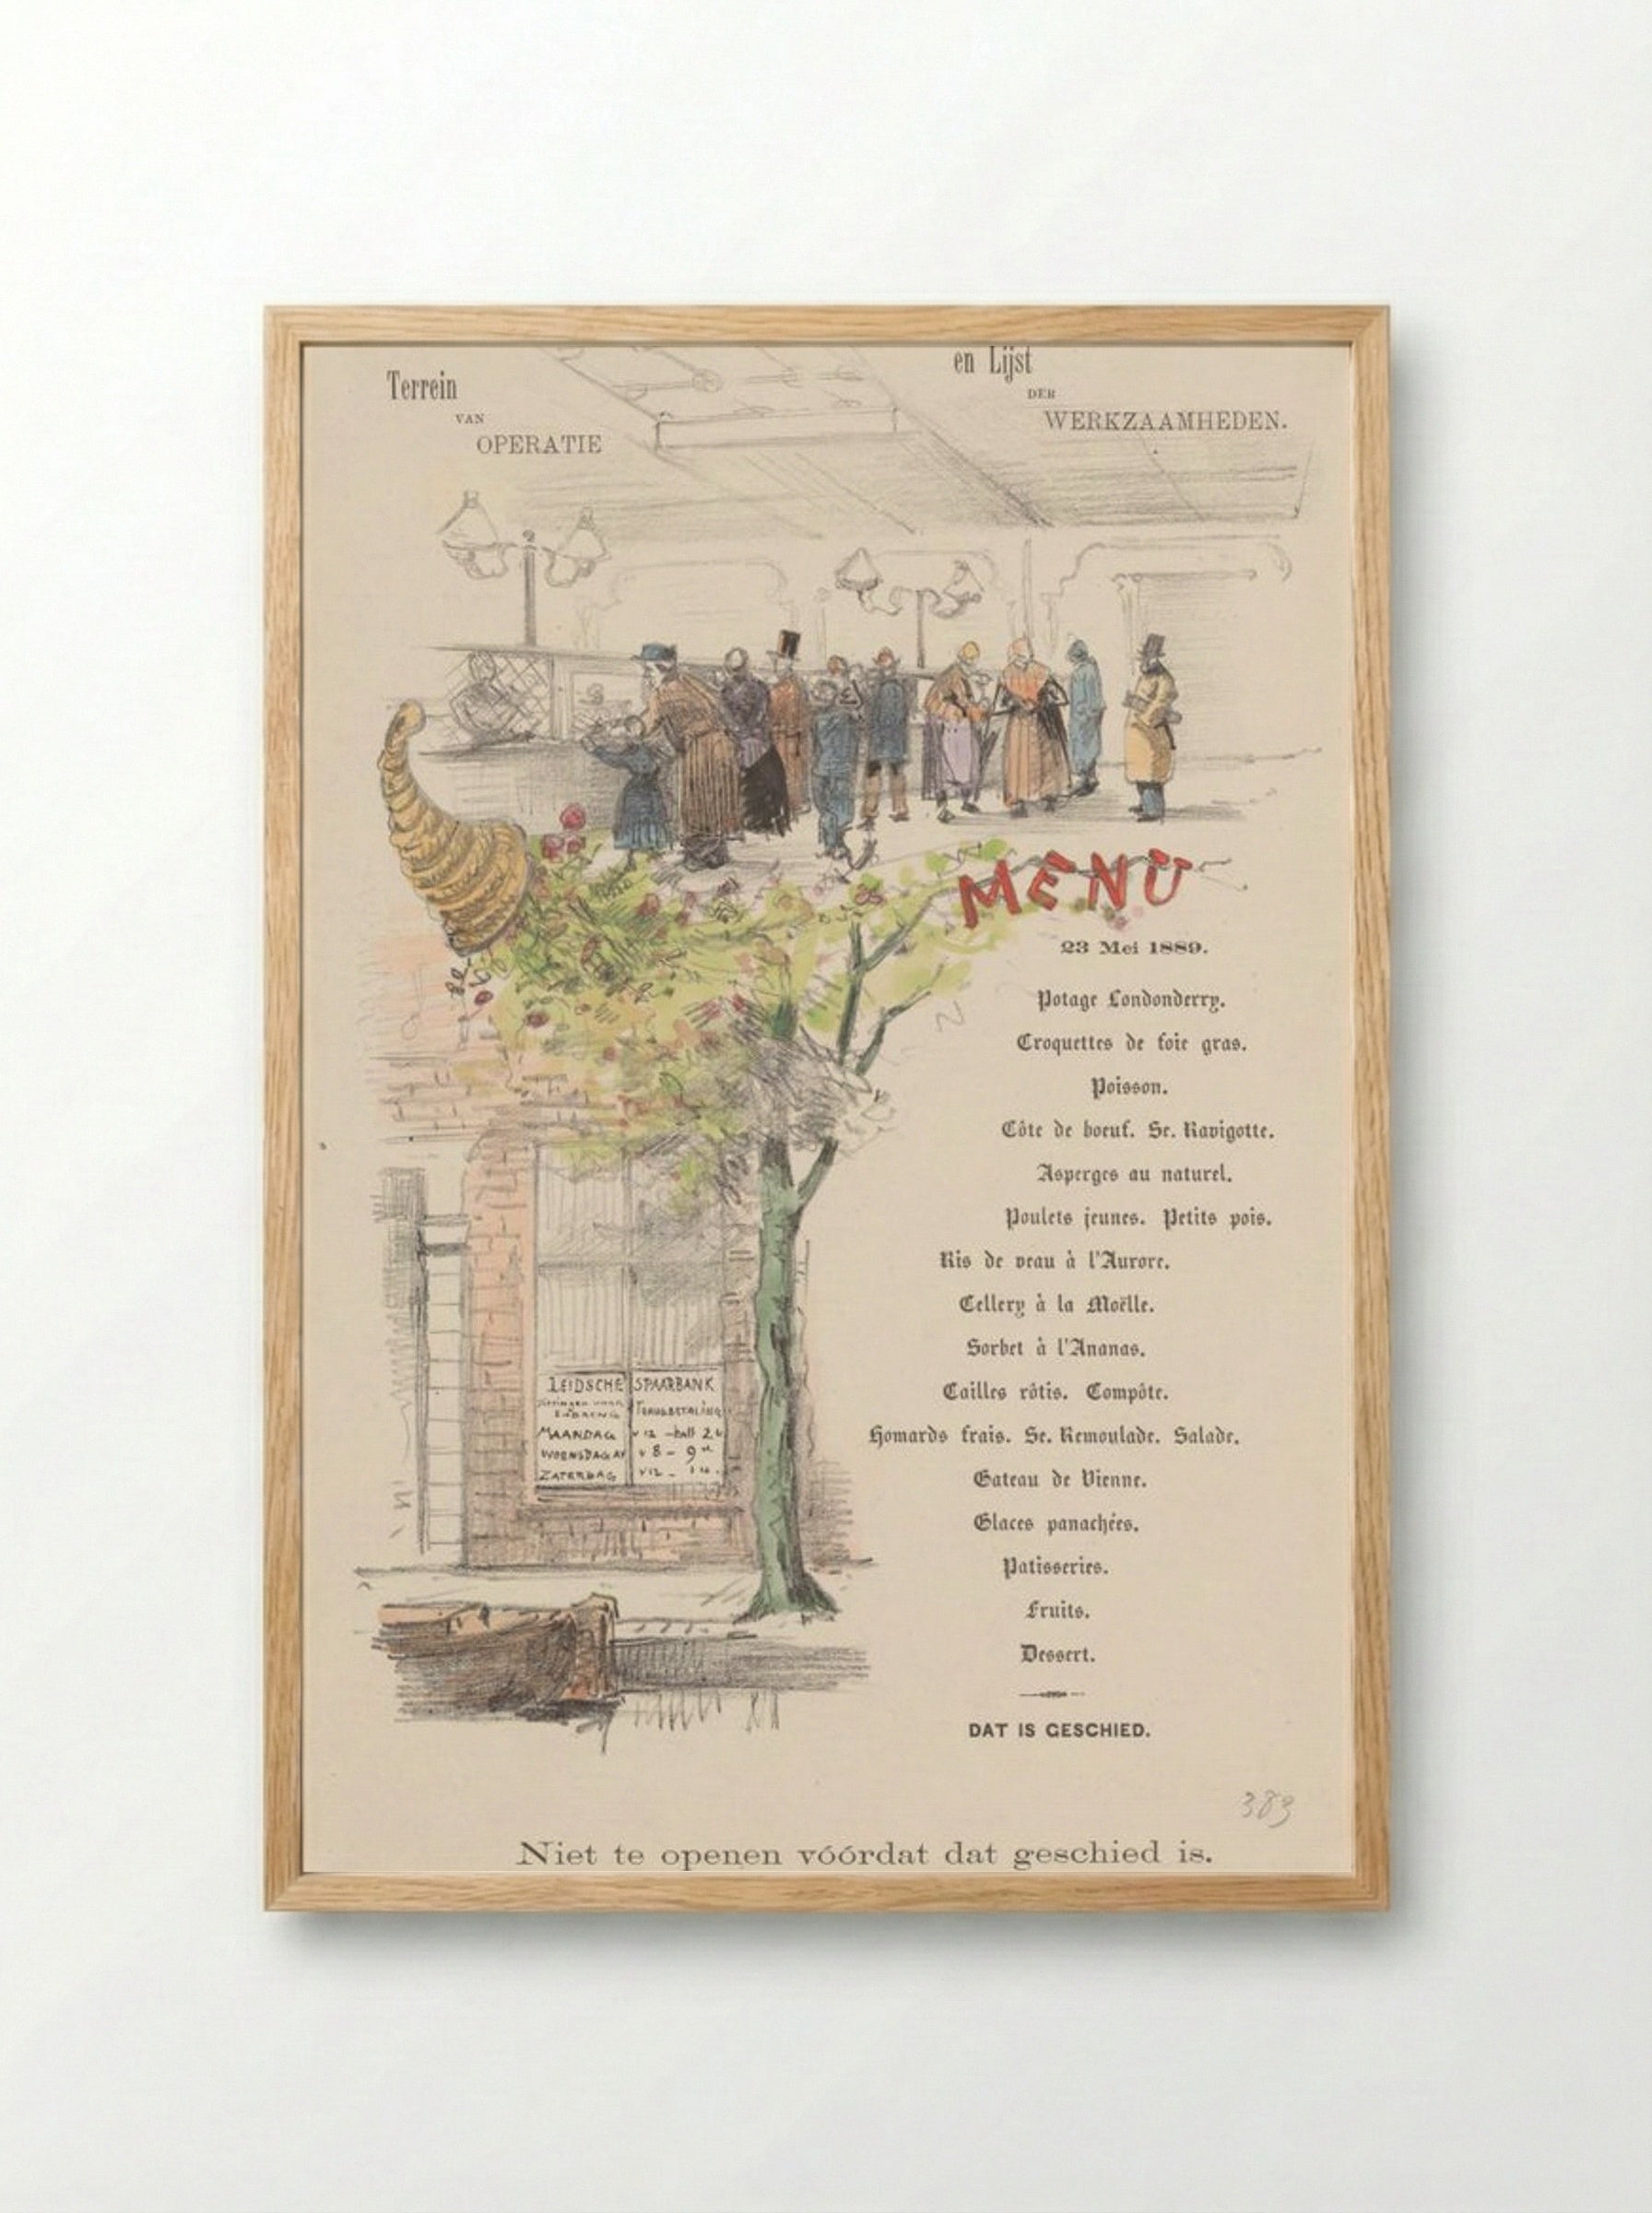 Terrein
VAN
OPERATIE
en Lijst
DER
WERKZAAMHEDEN.
MENU
23 Mei 1889.
Potage Londonderry.
Croquettes de foie gras.
Poisson.
Côte de boeuf. Sc. Ravigotte.
Asperges au naturel.
Poulets jeunes. Petits pois.
Ris de veau à l'Aurore.
Cellery à la Moëlle.
Sorbet à l'Ananas.
Cailles rôtis. Compôte.
Homards frais. Sc. Remoulade. Salade.
Gateau de Vienne.
Glaces panachées.
Patisseries.
Fruits.
Dessert.
DAT IS GESCHIED.
LEIDSCHE SPAARBANK
INBRENG TERUGBETALING
MAANDAG v 12 - half 2 u
WOENSDAG AV v 8 - 9 u
ZATERDAG v 12 - 1 u.
389
Niet te openen vóórdat dat geschied is.